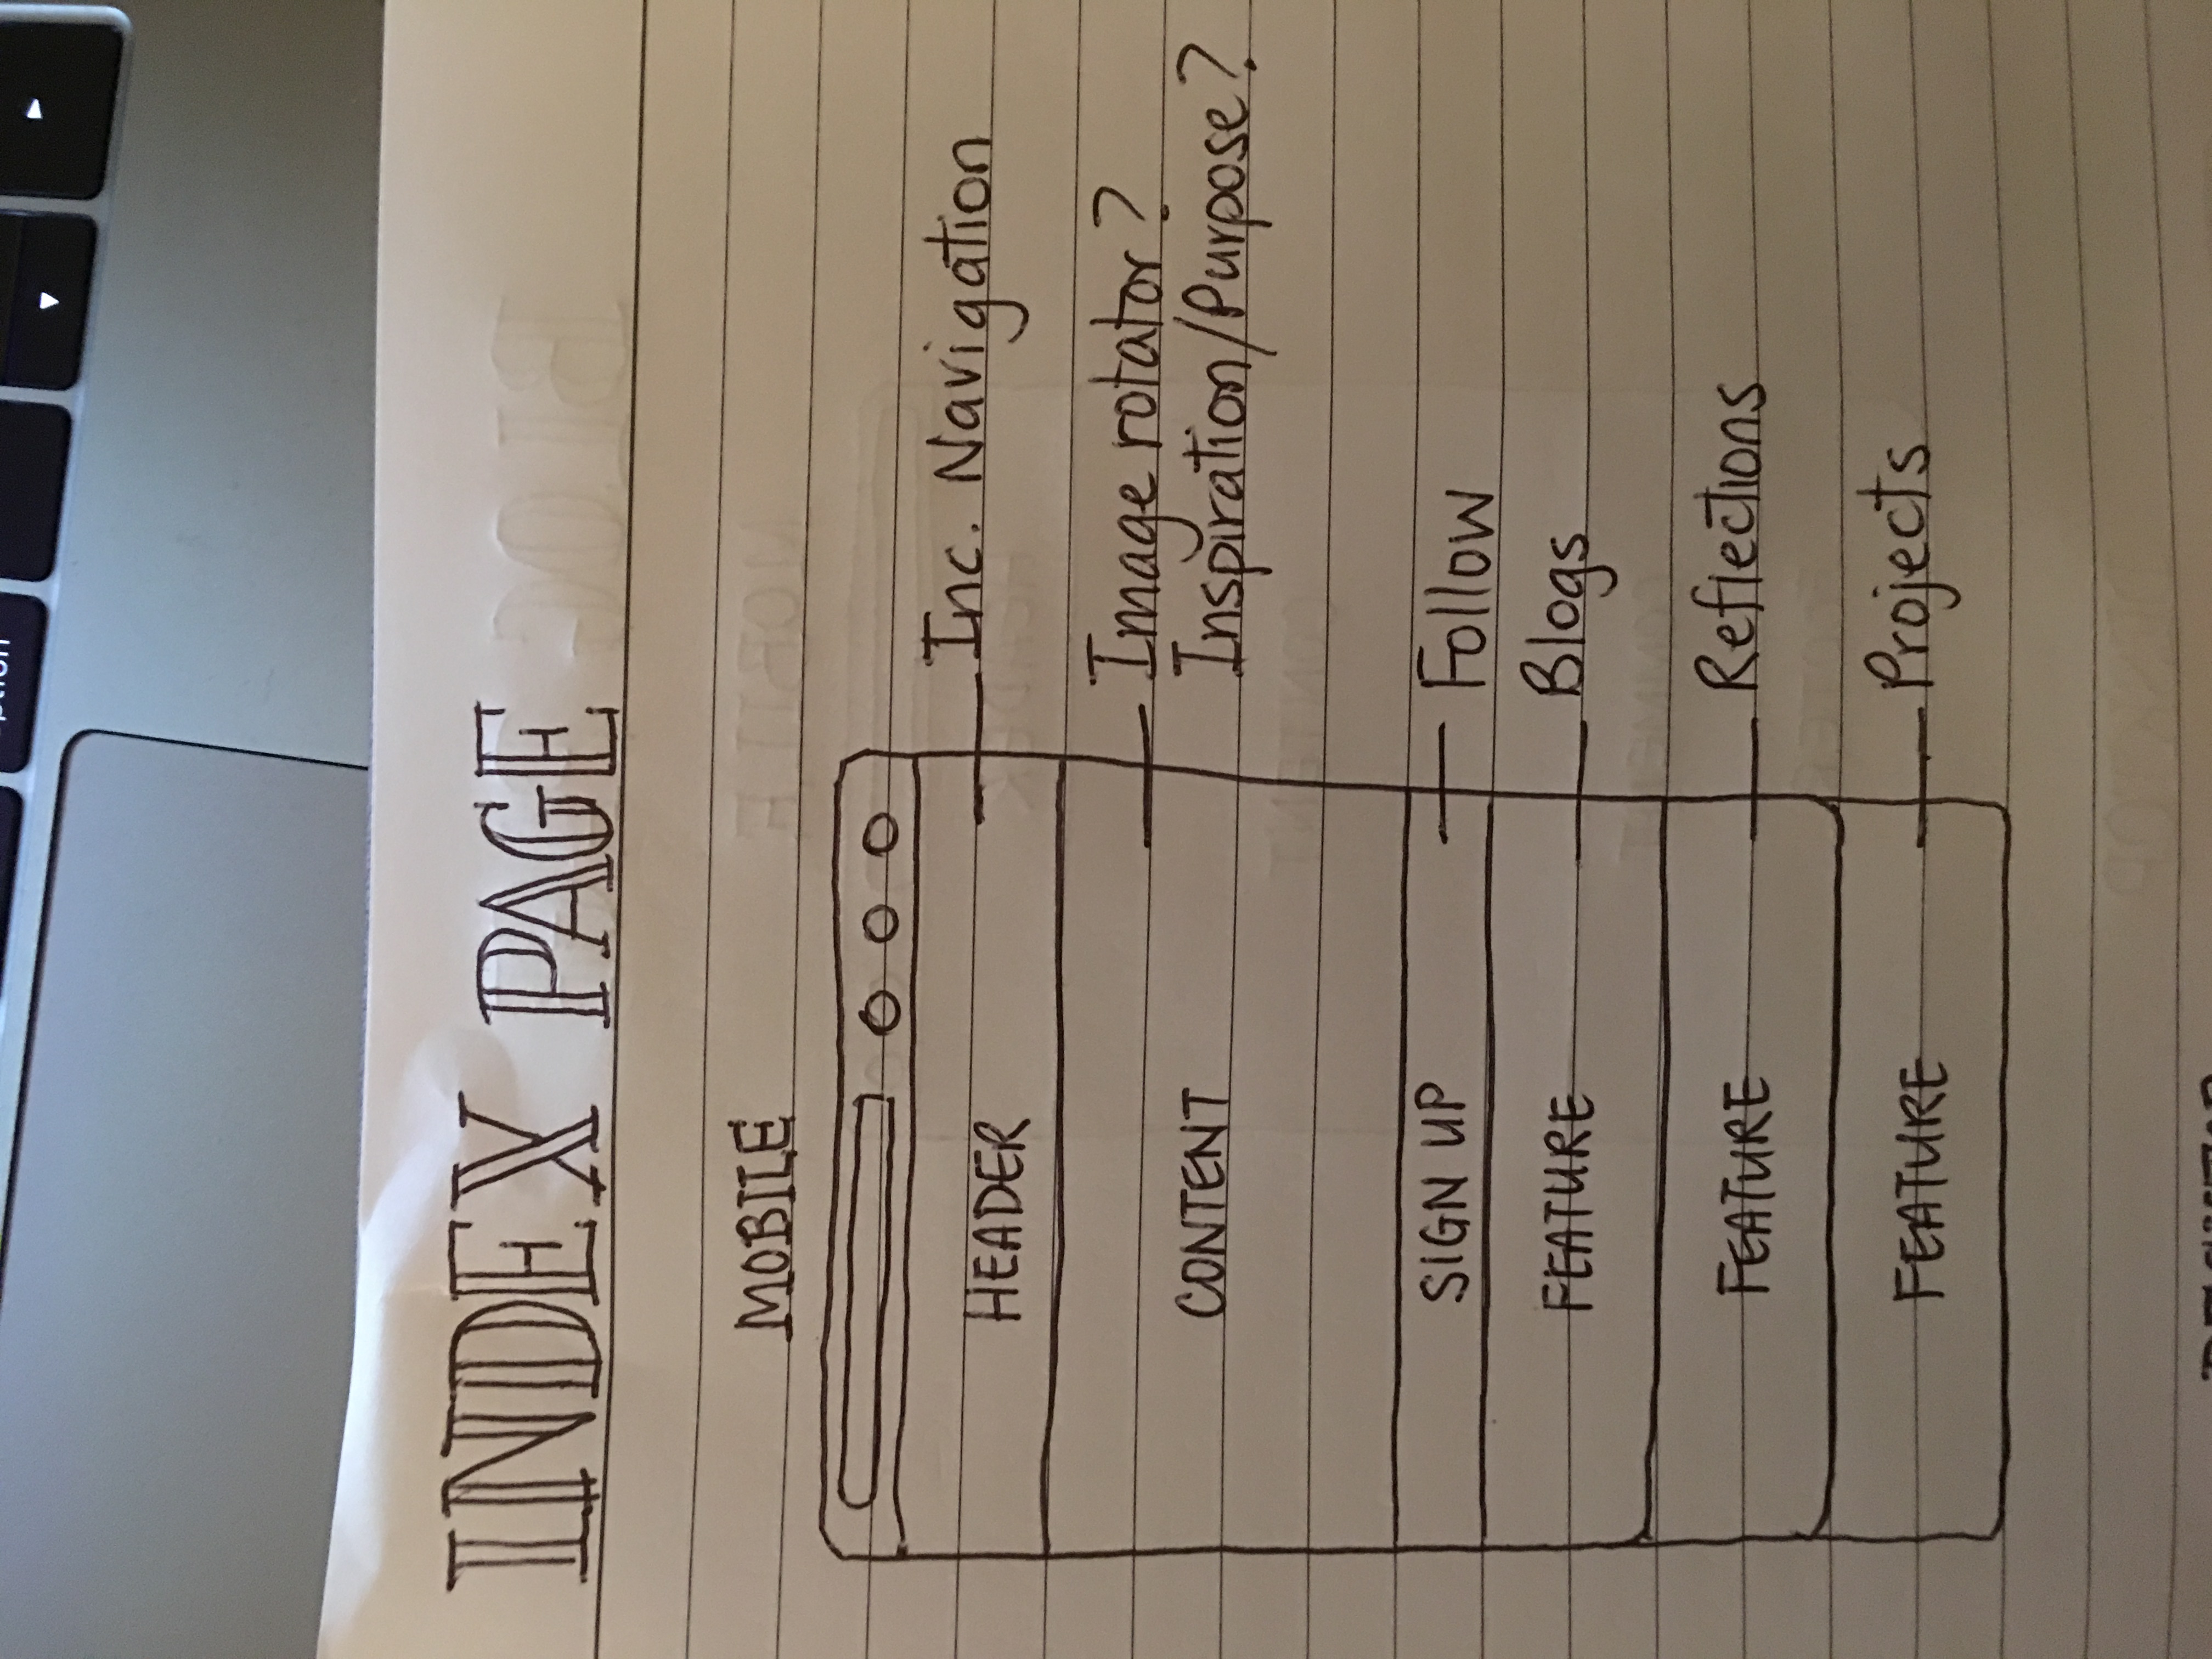 INDEX PAGE
MOBILE
HEADER
Inc. Navigation
Image rotator?
CONTENT
Inspiration/Purpose?
SIGN UP
Follow
FEATURE
Blogs
FEATURE
Reflections
FEATURE
Projects